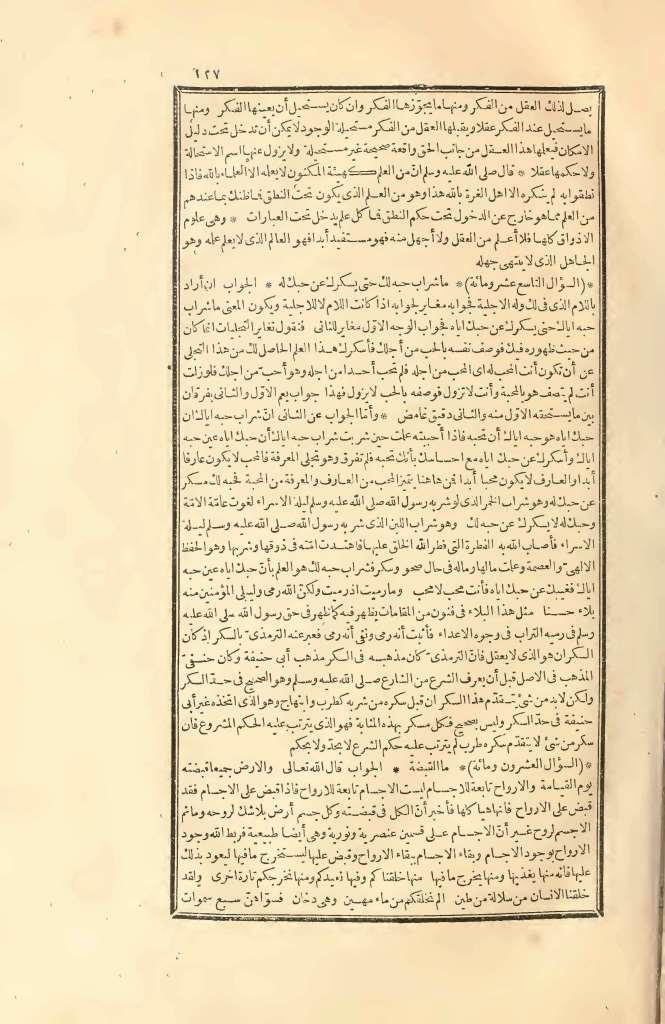 ١٢٧
يصل لذلك العقل من الفكر ومنها ما يجوّزها الفكر وان كان يستحيل أن يعينها الفكر ومنها
ما يستحيل عند الفكر عقلا ويقبلها العقل من الفكر مستحيلة الوجود لا يمكن أن تدخل تحت دليل
الامكان فيعلمها هذا العقل من جانب الحق واقعة صحيحة غير مستحيلة ولا يزول عنها اسم الاستحالة
ولا حكمها عقلا * قال صلى الله عليه وسلم انّ من العلم كهيئة المكنون لا يعلمه الا العلماء بالله فاذا
نطقوا به لم ينكره الا اهل الغرة بالله هذا وهو من العلم الذى يكون تحت النطق فما ظنك بما عندهم
من العلم مما هو خارج عن الدخول تحت حكم النطق فما كل علم يدخل تحت العبارات * وهى علوم
الاذواق كلها فلا أعلم من العقل ولا أجهل منه فهو مستفيد أبدا فهو العالم الذى لا يعلم علمه وهو
الجاهل الذى لا ينتهى جهله
* (السؤال التاسع عشر ومائة) * ما شراب حبه لك حتى يسكرك عن حبك له * الجواب ان أراد
باللام الذى فى لك وله الاجلية فجوابه مغاير لجوابه اذا كانت اللام لا للاجلية ويكون المعنى ما شراب
حبه اياك حتى يسكرك عن حبك اياه فجواب الوجه الاوّل مغاير للثانى فنقول تغاير التجليات انما كان
من حيث ظهوره فيك فوصف نفسه بالحب من أجلك فأسكرك هذا العلم الحاصل لك من هذا التجلى
عن أن تكون أنت المحب له اى المحب من اجله فلم تحب أحدا من اجله وهو أحب من اجلك فلو زلت
أنت لم يتصف هو بالمحبة وأنت لا تزول فوصفه بالحب لا يزول فهذا جواب يعم الاوّل والثانى بفرقان
بين ما يستحقه الاوّل منه والثانى دقيق غامض * وأمّا الجواب عن الثانى انّ شراب حبه اياك ان
حبك اياه هو حبه اياك أن تحبه فاذا أحببته علمت حين شربت شراب حبه اياك أن حبك اياه عين حبه
اياك وأسكرك عن حبك اياه مع احساسك بأنك تحبه فلم تفرق وهو تجلى المعرفة فالمحب لا يكون عارفا
أبدا والعارف لا يكون محبا أبدا فمن هاهنا يتميز المحب من العارف والمعرفة من المحبة فحبه لك مسكر
عن حبك له وهو شراب الخمر الذى لو شربه رسول الله صلى الله عليه وسلم ليلة الاسراء لغوت عامّة الامّة
وحبك له لا يسكرك عن حبه لك وهو شراب اللبن الذى شربه رسول الله صلى الله عليه وسلم ليلة
الاسراء فأصاب الله به الفطرة التى فطر الله الخلق عليها فاهتدت امّته فى ذوقها وشربها وهو الحفظ
الالهىّ والعصمة وعلمت ما لها وما له فى حال صحو وسكر فشراب حبه لك هو العلم بأنّ حبك اياه عين حبه
اياك فغيبك عن حبك اياه فأنت محب لا محب وما رميت اذ رميت ولكنّ الله رمى وليبلى المؤمنين منه
بلاء حسنا مثل هذا البلاء فى فنون من المقامات يظهر فيه كما ظهر فى حق رسول الله صلى الله عليه
وسلم فى رميه التراب فى وجوه الاعداء فأثبت أنه رمى ونفى أنه رمى فعبر عنه الترمذىّ بالسكر اذ كان
السكران هو الذى لا يعقل فانّ الترمذىّ كان مذهبه فى السكر مذهب أبى حنيفة وكان حنفىّ
المذهب فى الاصل قبل أن يعرف الشرع من الشارع صلى الله عليه وسلم وهو الصحيح فى حدّ السكر
ولكن لا بد من شئ يتقدّم هذا السكر ان قبل سكره من شربه كطرب وابتهاج وهو الذى اتخذه غير أبى
حنيفة فى حدّ السكر وليس بصحيح فكل مسكر بهذه المثابة فهو الذى يترتب عليه الحكم المشروع فان
سكر من شئ لا يتقدّم سكره طرب لم يترتب عليه حكم الشرع لا بحدّ ولا بحكم
* (السؤال العشرون ومائة) * ما القبضة * الجواب قال الله تعالى والارض جميعا قبضته
يوم القيامة والارواح تابعة للاجسام ليست الاجسام تابعة للارواح فاذا قبض على الاجسام فقد
قبض على الارواح فانها هياكلها فأخبر أنّ الكل فى قبضته وكل جسم أرض بلا شك لروحه وما ثم
الا جسم وروح غير أنّ الاجسام على قسمين عنصرية ونورية وهى أيضا طبيعية فربط الله وجود
الارواح بوجود الاجسام وبقاء الاجسام ببقاء الارواح وقبض عليها ليستخرج ما فيها ليعود بذلك
عليها فانه منها يغذيها ومنها يخرج ما فيها منها خلقناكم وفيها نعيدكم ومنها نخرجكم تارة اخرى ولقد
خلقنا الانسان من سلالة من طين الم نخلقكم من ماء مهين وهى دخان فسوّاهنّ سبع سموات